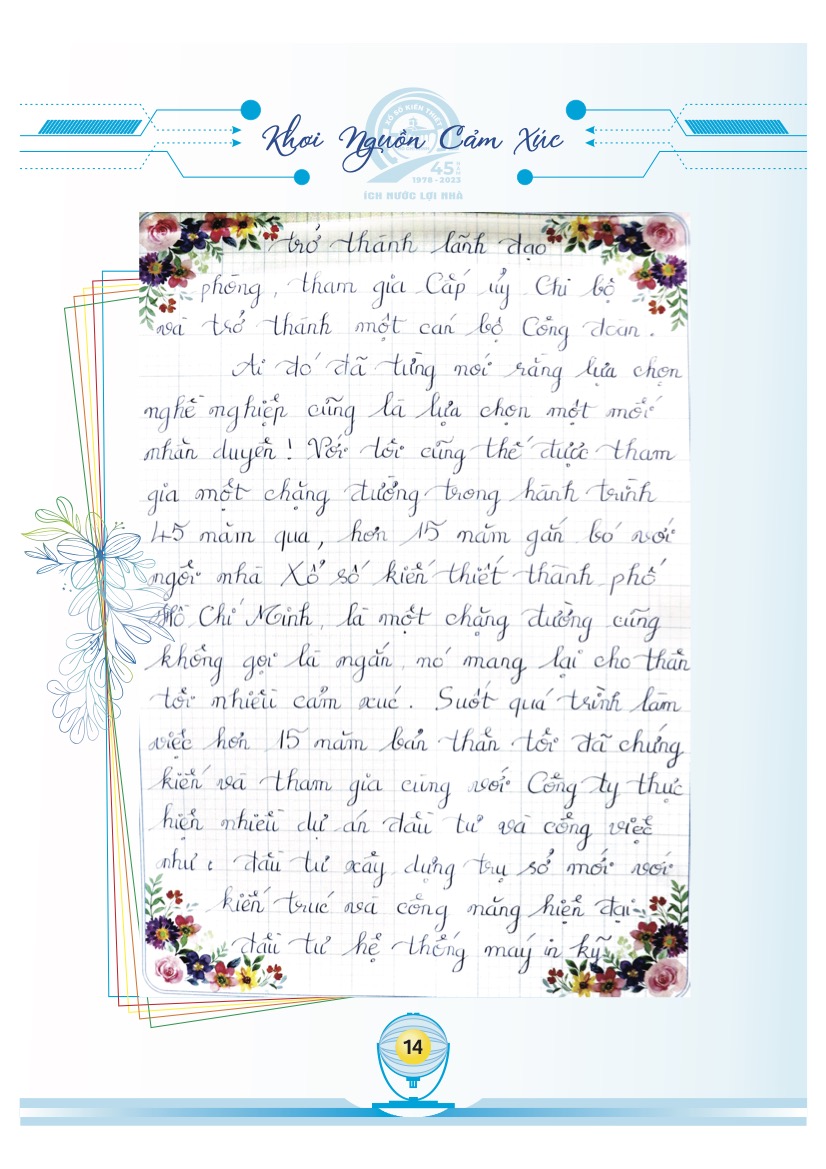 XỔ SỐ KIẾN THIẾT
Khơi Nguồn Cảm Xúc
45 NĂM
1978 - 2023
ÍCH NƯỚC LỢI NHÀ
trở thành lãnh đạo
phòng, tham gia Cấp ủy Chi bộ
và trở thành một cán bộ Công đoàn.
Ai đó đã từng nói rằng lựa chọn
nghề nghiệp cũng là lựa chọn một mối
nhân duyên! Với tôi cũng thế được tham
gia một chặng đường trong hành trình
45 năm qua, hơn 15 năm gắn bó với
ngôi nhà Xổ số kiến thiết thành phố
Hồ Chí Minh, là một chặng đường cũng
không gọi là ngắn, nó mang lại cho thân
tôi nhiều cảm xúc. Suốt quá trình làm
việc hơn 15 năm bản thân tôi đã chứng
kiến và tham gia cùng với Công ty thực
hiện nhiều dự án đầu tư và công việc
như: đầu tư xây dựng trụ sở mới với
kiến trúc và công năng hiện đại
đầu tư hệ thống máy in kỹ
14